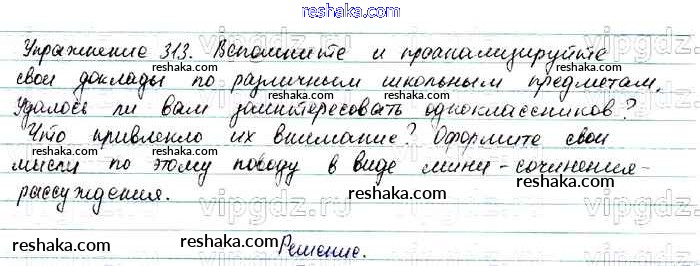 reshaka.com
Упражнение 313. Вспомните и проанализируйте
свои доклады по различным школьным предметам,
Удалось ли вам заинтересовать одноклассников?
Что привлекло их внимание? Оформите свои
мысли по этому поводу в виде мини-сочинения-
рассуждения.
Решение.
reshaka.com reshaka.com reshaka.com
reshaka.com reshaka.com reshaka.com
reshaka.com reshaka.com reshaka.com
reshaka.com reshaka.com
reshaka.com reshaka.com reshaka.com
vipgdz.ru